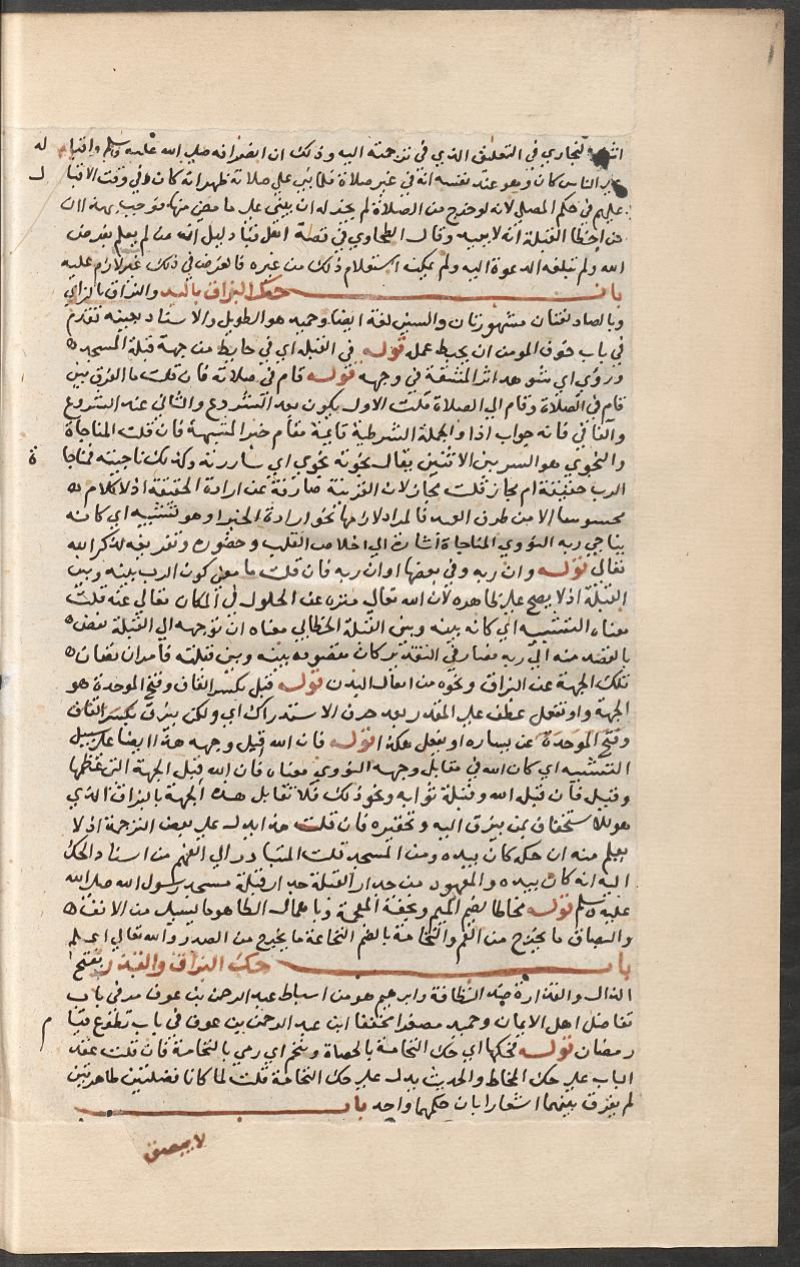 البخاري في التعليق الذي في ترجمته اليه وذلك ان انصرافه صلى الله عليه وسلم واقباله
على الناس كان وهو عند نفسه انه في غير صلاة فلما بنى على صلاته ظهر انه كان في وقت الاقبال
عليهم في حكم المصلي لانه لو خرج من الصلاة لم يجز له ان يبني على ما مضى منها فوجب بهذا ان
من اخطا القبلة انه لا يعيد وقال الطحاوي في قصة اهل قبا دليل انه من لم يعلم بفرض
الله ولم تبلغه الدعوة اليه ولم يمكنه استعلام ذلك من غيره فالفرض في ذلك غير لازم عليه
باب حك البزاق باليد والبزاق بالزاي
وبالصاد لغتان مشهورتان والسين لغة ايضا وحميد هو الطويل والاسناد بعينه تقدم
في باب خوف المومن ان يحبط عمله قوله في القبلة اي في حايط من جهة قبلة المسجد
ورؤي اي شوهد اثر المشقة في وجهه قوله قام في صلاته فان قلت ما الفرق بين
قام في الصلاة وقام الى الصلاة قلت الاول يكون بعد الشروع والثاني عند الشروع
والفا في فانه جواب اذا والجملة الشرطية قايمة مقام خبر المشبهة فان قلت المناجاة
والنجوى هو السر بين الاثنين يقال نجوته نجوى اي ساررته وكذلك ناجيته فمناجاة
الرب حقيقة ام مجاز قلت مجاز لان القرينة صارفة عن ارادة الحقيقة اذ لا كلام
محسوسا الا من طرف العبد فالمراد لازمها نحو ارادة الخير او هو تشبيه اي كانه
يناجي ربه النووي المناجاة اشارة الى اخلاص القلب وحضوره وتفريغه لذكر الله
تعالى قوله وان ربه وفي بعضها او ان ربه فان قلت ما معنى كون الرب بينه وبين
القبلة اذ لا يصح على ظاهره لان الله تعالى منزه عن الحلول في المكان تعالى عنه قلت
معناه التشبيه اي كانه بينه وبين القبلة الخطابي معناه ان توجهه الى القبلة مفض
بالقصد منه الى ربه فصار في التقدير كان مقصوده بينه وبين قبلته فامر ان تصان
تلك الجهة عن البزاق ونحوه من اثقال البدن قوله قبل بكسر القاف وفتح الموحدة هو
الجهة واو تفعل عطف على المقدر بعد حرف الاستدراك اي ولكن يبزق بكسر القاف
وفتح الموحدة عن يساره او يفعل هكذا قوله فان الله قبل وجهه هذا ايضا على سبيل
التشبيه اي كان الله في مقابل وجهه النووي معناه فان الله قبل الجهة التي عظمها
وقيل فان قبله الله وقبلة ثوابه ونحو ذلك فلا تقابل هذه الجهة بالبزاق الذي
هو للاستخفاف بمن يبزق اليه وتحقيره فان قلت هذا يدل على بعض الترجمة اذ لا
يعلم منه ان حكه كان بيده ومن المسجد قلت المتبادر الى الفهم من اسناد الحك
اليه انه كان بيده والمعهود من جدار القبلة جدار قبلة مسجد رسول الله صلى الله
عليه وسلم قوله مخاطا بضم الميم وبخفة المعجمة وباهمال الطا هو ما يسيل من الانف
والبصاق ما يخرج من الفم والنخامة بالضم النخاعة ما يخرج من الصدر والله تعالى اعلم
باب حك البزاق والقذر بفتح
الذال والقذارة ضد النظافة وابراهيم هو من اسباط عبد الرحمن بن عوف مر في باب
تفاضل اهل الايمان وحميد مصغرا مخففا ابن عبد الرحمن بن عوف في باب تطوع قيام
رمضان قوله فحكها اي حك النخامة بالحصاة وتنخم اي رمى بالنخامة فان قلت عقد
الباب على حك المخاط والحديث يدل على حك النخامة قلت لما كانا فضلتين طاهرتين
لم يفرق بينهما اشعارا بان حكمهما واحد باب
لا يبصق